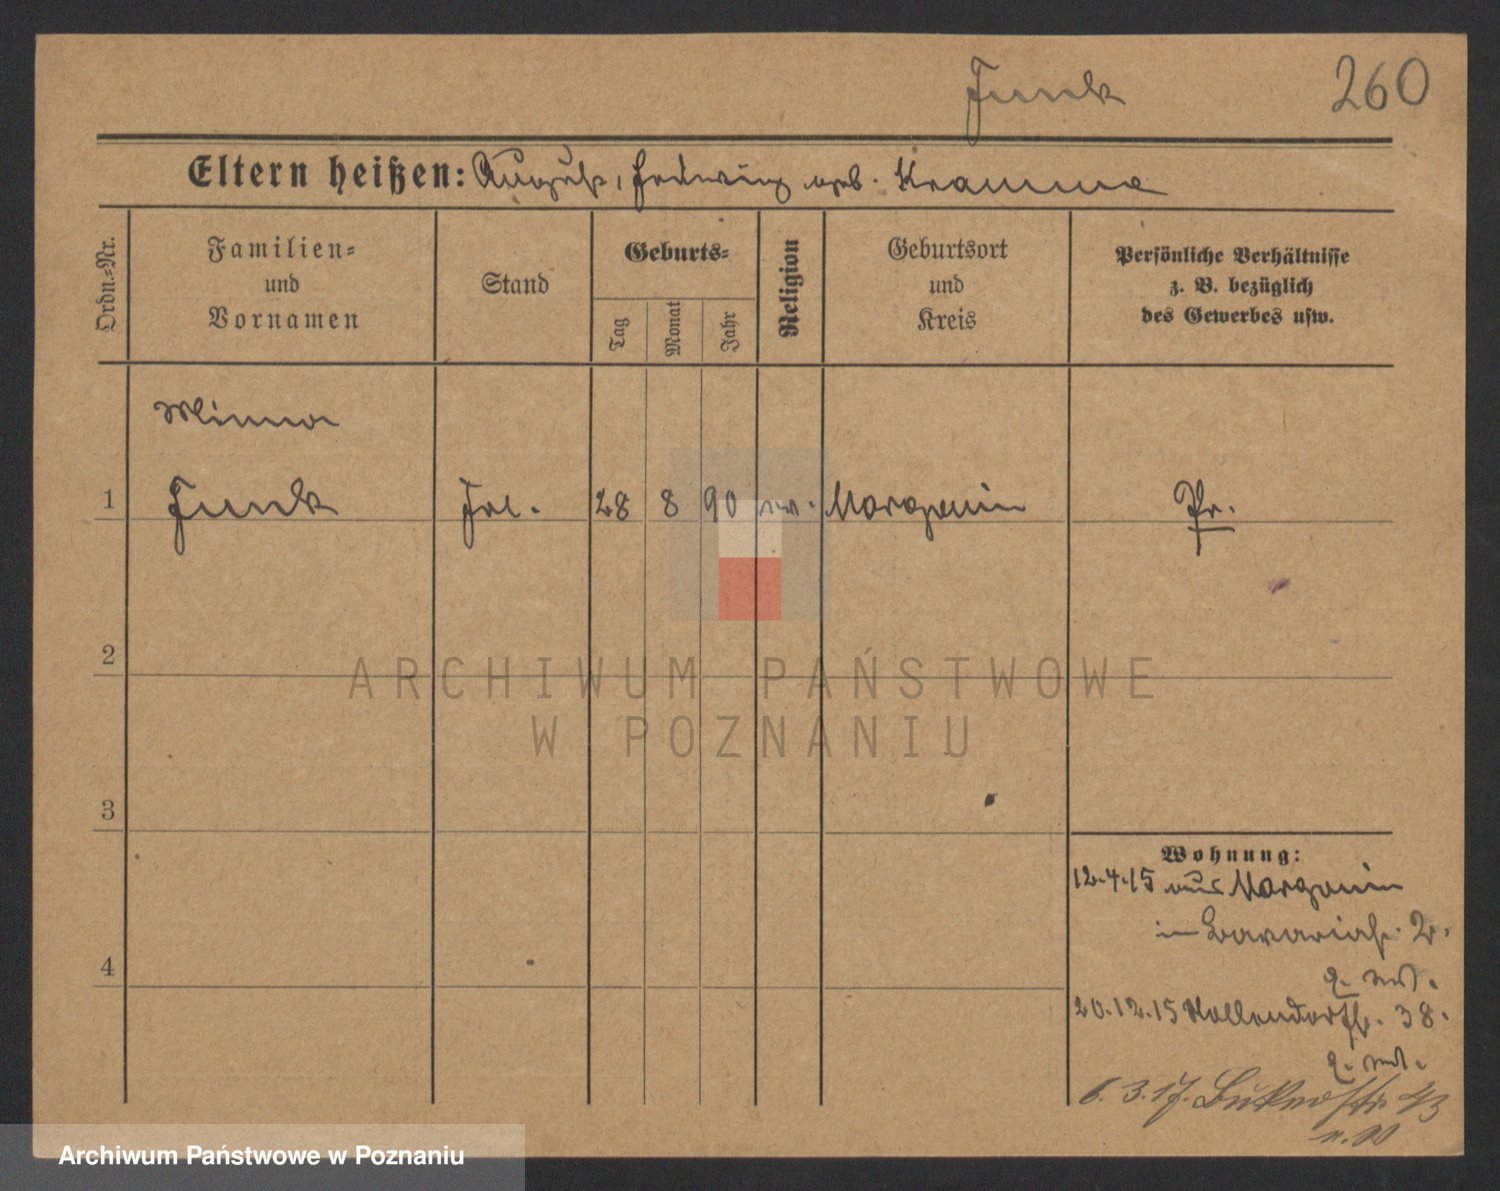 Funk 260
Eltern heißen: August, Hedwig geb. Kramme
Ordn.=Nr.
Familien=
und
Vornamen
Stand
Geburts=
Tag
Monat
Jahr
Religion
Geburtsort
und
Kreis
Persönliche Verhältnisse
z. B. bezüglich
des Gewerbes usw.
Minna
1 Funk Frl. 28 8 90 ev. Margonin Pr.
2
3
4
Wohnung:
12.4.15 aus Margonin
in Bavariastr. 2.
20.12.15 Hollendorfstr. 38.
6.3.17. Bukerstr. 43
ARCHIWUM PAŃSTWOWE
W POZNANIU
Archiwum Państwowe w Poznaniu